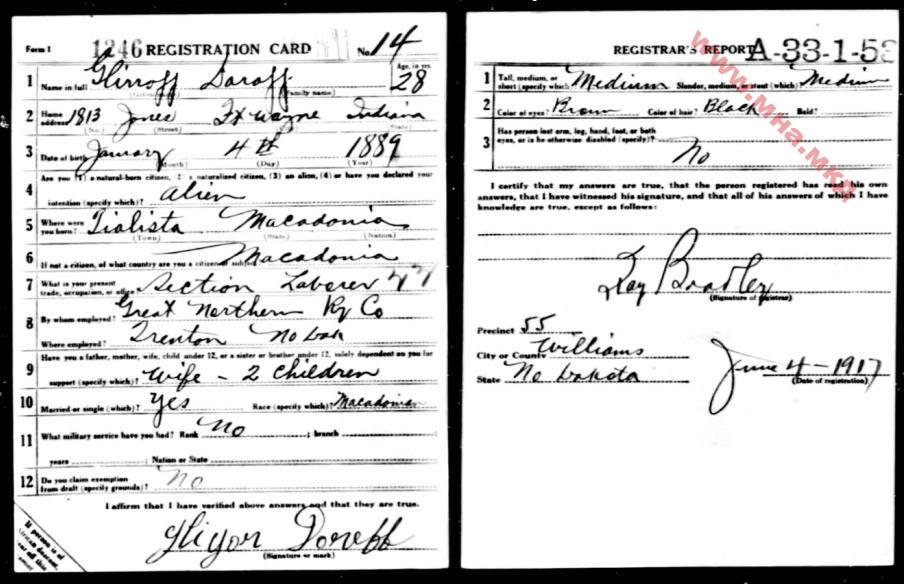 Form 1
1246 REGISTRATION CARD No. 14
1 Name in full Glirroff Daroff Age, in yrs 28
(Family name)
2 Home address 1813 Jones Ft Wayne Indiana
(No.) (Street) (State)
3 Date of birth January 4th 1889
(Month) (Day) (Year)
4 Are you (1) a natural-born citizen, (2) a naturalized citizen, (3) an alien, (4) or have you declared your
intention (specify which)? alien
5 Where were you born? Tialista Macadonia
(Town) (State) (Nation)
6 If not a citizen, of what country are you a citizen or subject? Macadonia
7 What is your present trade, occupation, or office? Section Laborer
8 By whom employed? Great Northern Ry Co
Where employed? Trenton No Dak
9 Have you a father, mother, wife, child under 12, or a sister or brother under 12, solely dependent on you for
support (specify which)? Wife - 2 Children
10 Married or single (which)? Yes Race (specify which)? Macadonian
11 What military service have you had? Rank No ; branch ;
years ; Nation or State
12 Do you claim exemption from draft (specify grounds)? No
I affirm that I have verified above answers and that they are true.
Gligor Doreff
(Signature or mark)
If person is of
African descent,
REGISTRAR'S REPORT A-33-1-53
1 Tall, medium, or short (specify which)? Medium Slender, medium, or stout (which)? Medium
2 Color of eyes? Brown Color of hair? Black Bald?
3 Has person lost arm, leg, hand, foot, or both
eyes, or is he otherwise disabled (specify)?
No
I certify that my answers are true, that the person registered has read his own
answers, that I have witnessed his signature, and that all of his answers of which I have
knowledge are true, except as follows:
Ray Bradley
(Signature of registrar)
Precinct 55
City or County Williams
State No Dakota
June 4 - 1917
(Date of registration)
www.MHa.MK